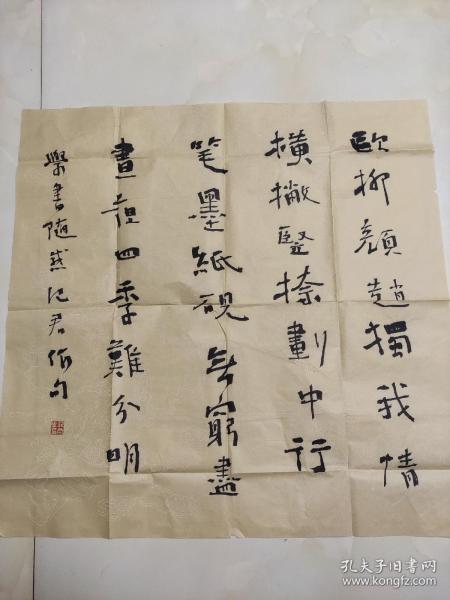 欧柳顔趙獨我情
橫撇竪捺劃中行
笔墨紙硯无窮盡
晝夜四季難分明
學書随感記君作句
孔夫子旧书网
www.kongfz.com